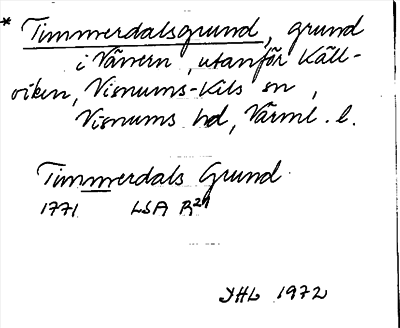 * Timmerdalsgrund, grund
i Vänern, utanför Käll-
viken, Visnums-Kils sn,
Visnums hd, Värml. l.
Timmerdals Grund
1771 LSA R29
YHL 1972